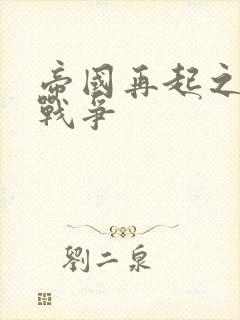 帝國再起之
戰爭
劉二泉